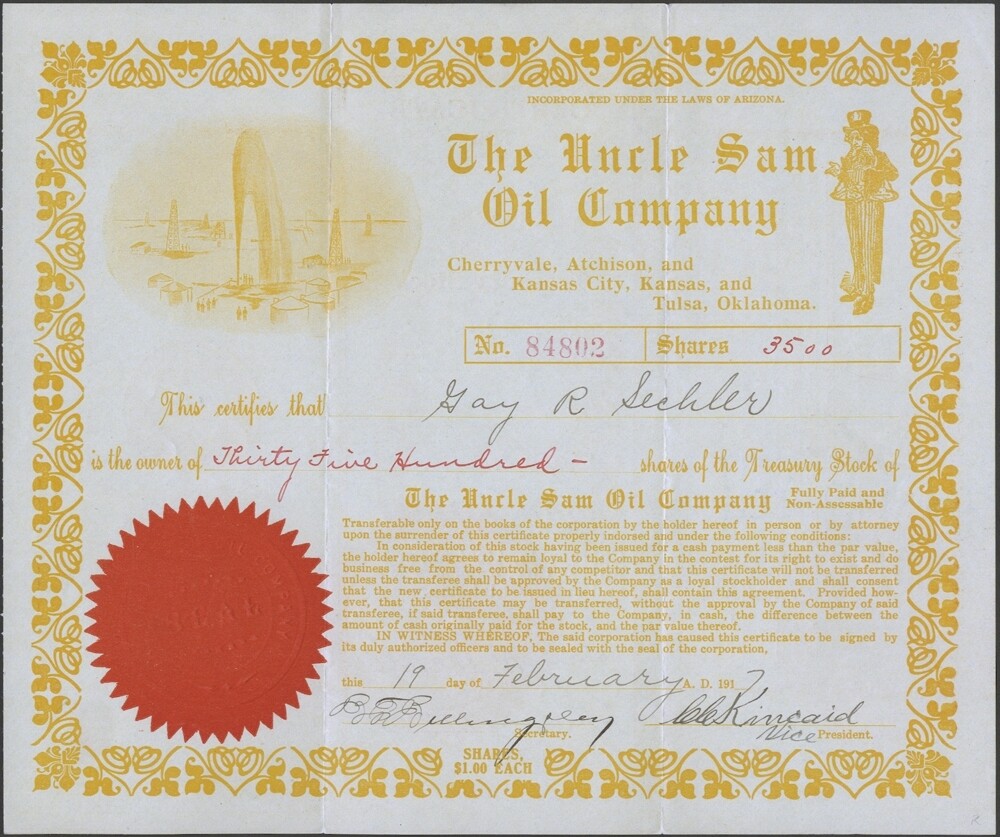 INCORPORATED UNDER THE LAWS OF ARIZONA.
The Uncle Sam
Oil Company
Cherryvale, Atchison, and
Kansas City, Kansas, and
Tulsa, Oklahoma.
No. 84802 Shares 3500
This certifies that Gay R Sechler
is the owner of Thirty Five Hundred – shares of the Treasury Stock of
The Uncle Sam Oil Company Fully Paid and
Non-Assessable
Transferable only on the books of the corporation by the holder hereof in person or by attorney
upon the surrender of this certificate properly indorsed and under the following conditions:
In consideration of this stock having been issued for a cash payment less than the par value,
the holder hereof agrees to remain loyal to the Company in the contest for its right to exist and do
business free from the control of any competitor and that this certificate will not be transferred
unless the transferee shall be approved by the Company as a loyal stockholder and shall consent
that the new certificate to be issued in lieu hereof, shall contain this agreement. Provided how-
ever, that this certificate may be transferred, without the approval by the Company of said
transferee, if said transferee, shall pay to the Company, in cash, the difference between the
amount of cash originally paid for the stock, and the par value thereof.
IN WITNESS WHEREOF, The said corporation has caused this certificate to be signed by
its duly authorized officers and to be sealed with the seal of the corporation,
this 19 day of February A. D. 1917
Kincaid
Secretary. Vice President.
SHARES,
$1.00 EACH
SEAL